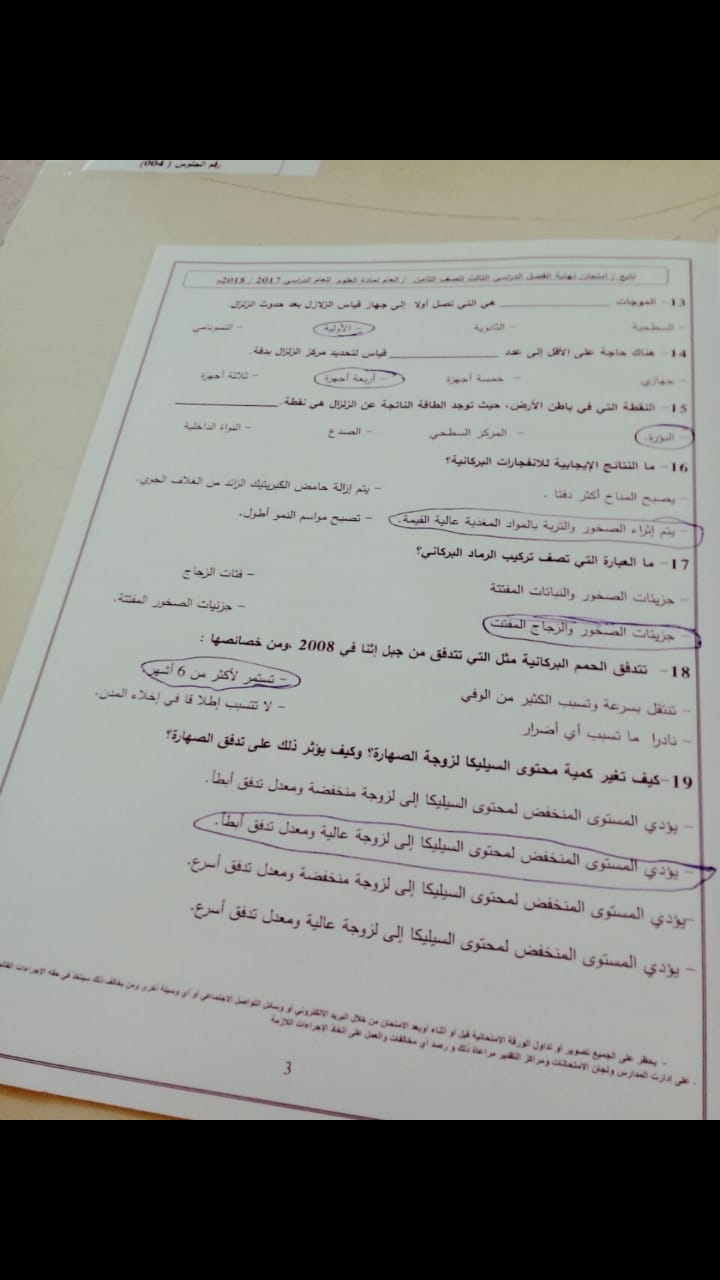 رقم الجلوس ( 004)
تابع / إمتحان نهاية الفصل الدراسي الثالث للصف الثامن / العام لمادة العلوم للعام الدراسي 2017 / 2018م
13- الموجات ____________ هي التي تصل أولا إلى جهاز قياس الزلازل بعد حدوث الزلزال.
- السطحية - الثانوية - الأولية - التسونامي
14- هناك حاجة على الأقل إلى عدد ____________ قياس لتحديد مركز الزلزال بدقة.
- جهازي - خمسة أجهزة - أربعة أجهزة - ثلاثة أجهزة
15- النقطة التي في باطن الأرض، حيث توجد الطاقة الناتجة عن الزلزال هي نقطة. ____________
- البؤرة. - المركز السطحي - الصدع - النواة الداخلية
16- ما النتائج الإيجابية للانفجارات البركانية؟
- يصبح المناخ أكثر دفئا . - يتم إزالة حامض الكبريتيك الزائد من الغلاف الجوي.
- يتم إثراء الصخور والتربة بالمواد المغذية عالية القيمة. - تصبح مواسم النمو أطول.
17- ما العبارة التي تصف تركيب الرماد البركاني؟
- جزيئات الصخور والنباتات المفتتة - فتات الزجاج
- جزيئات الصخور والزجاج المفتت - جزئيات الصخور المفتتة.
18- تتدفق الحمم البركانية مثل التي تتدفق من جبل إثنا في 2008 ،ومن خصائصها :
- تنتقل بسرعة وتسبب الكثير من الوفي - تستمر لأكثر من 6 أشهر.
- نادرا ما تسبب أي أضرار - لا تتسبب إطلا قا في إخلاء المدن.
19-كيف تغير كمية محتوى السيليكا لزوجة الصهارة؟ وكيف يؤثر ذلك على تدفق الصهارة؟
- يؤدي المستوى المنخفض لمحتوى السيليكا إلى لزوجة منخفضة ومعدل تدفق أبطأ.
- يؤدي المستوى المنخفض لمحتوى السيليكا إلى لزوجة عالية ومعدل تدفق أبطأ.
-يؤدي المستوى المنخفض لمحتوى السيليكا إلى لزوجة منخفضة ومعدل تدفق أسرع.
- يؤدي المستوى المنخفض لمحتوى السيليكا إلى لزوجة عالية ومعدل تدفق أسرع.
- يحظر على الجميع تصوير او تداول الورقة الامتحانية قبل او أثناء اوبعد الامتحان من خلال البريد الالكتروني او وسائل التواصل الاجتماعي او أي وسيلة أخرى ومن يخالف ذلك سيتخذ في حقه الإجراءات
- على إدارت المدارس ولجان الامتحانات ومراكز التقدير مراعاة ذلك و رصد أي مخالفات والعمل على اتخاذ الإجراءات اللازمة
3